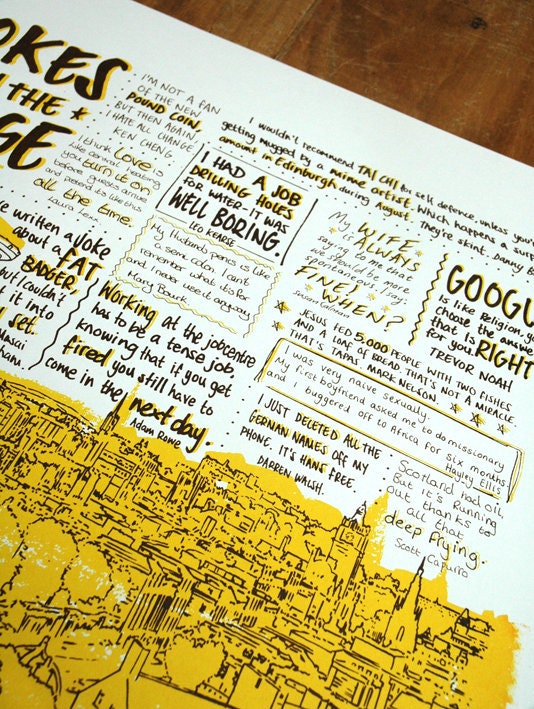 OKES
THE
GE
I'M NOT A FAN
OF THE NEW
POUND COIN,
BUT THEN AGAIN
I HATE ALL CHANGE
KEN CHENG.
I think LOVE is
like central heating
you turn it on
before guests arrive
and pretend it's like this
all the time.
Laura Lexx
I HAD A JOB
DRILLING HOLES
FOR WATER. IT WAS
WELL BORING.
LEO KEARSE
I wouldn't recommend TAI CHI for self defence, unless you're
getting mugged by a mime artist. Which happens a surp
amount in Edinburgh during August. They're skint. Danny B
My WIFE
is ALWAYS
saying to me that
we should be more
spontaneous. I say:
FINE!
WHEN?
My Husbands penis is like
a semi colon. I can't
remember what it's for
and I never use it anyway
Mary Bourke
GOOGL
is like Religion yo
choose the answe
that is RIGHT
for you.
TREVOR NOAH
ve written a joke
about a FAT
BADGER.
but I couldn't
t it into
set.
Masai
ham.
Working at the jobcentre
has to be a tense job,
knowing that if you get
fired you still have to
come in the next day.
Adam Rowe
JESUS FED 5,000 PEOPLE WITH TWO FISHES
AND A LOAF OF BREAD. THAT'S NOT A MIRACLE
THAT'S TAPA. MARK NELSON.
I was very naive sexually.
My first boyfriend asked me to do missionary
and I buggered off to Africa for six months.
Hayley Ellis
I JUST DELETED ALL THE
GERMAN NAMES OFF MY
PHONE, IT'S HANS FREE.
DARREN WALSH.
Scotland had oil,
But it's Running
out thanks to
all that
deep frying.
Scott Capurro